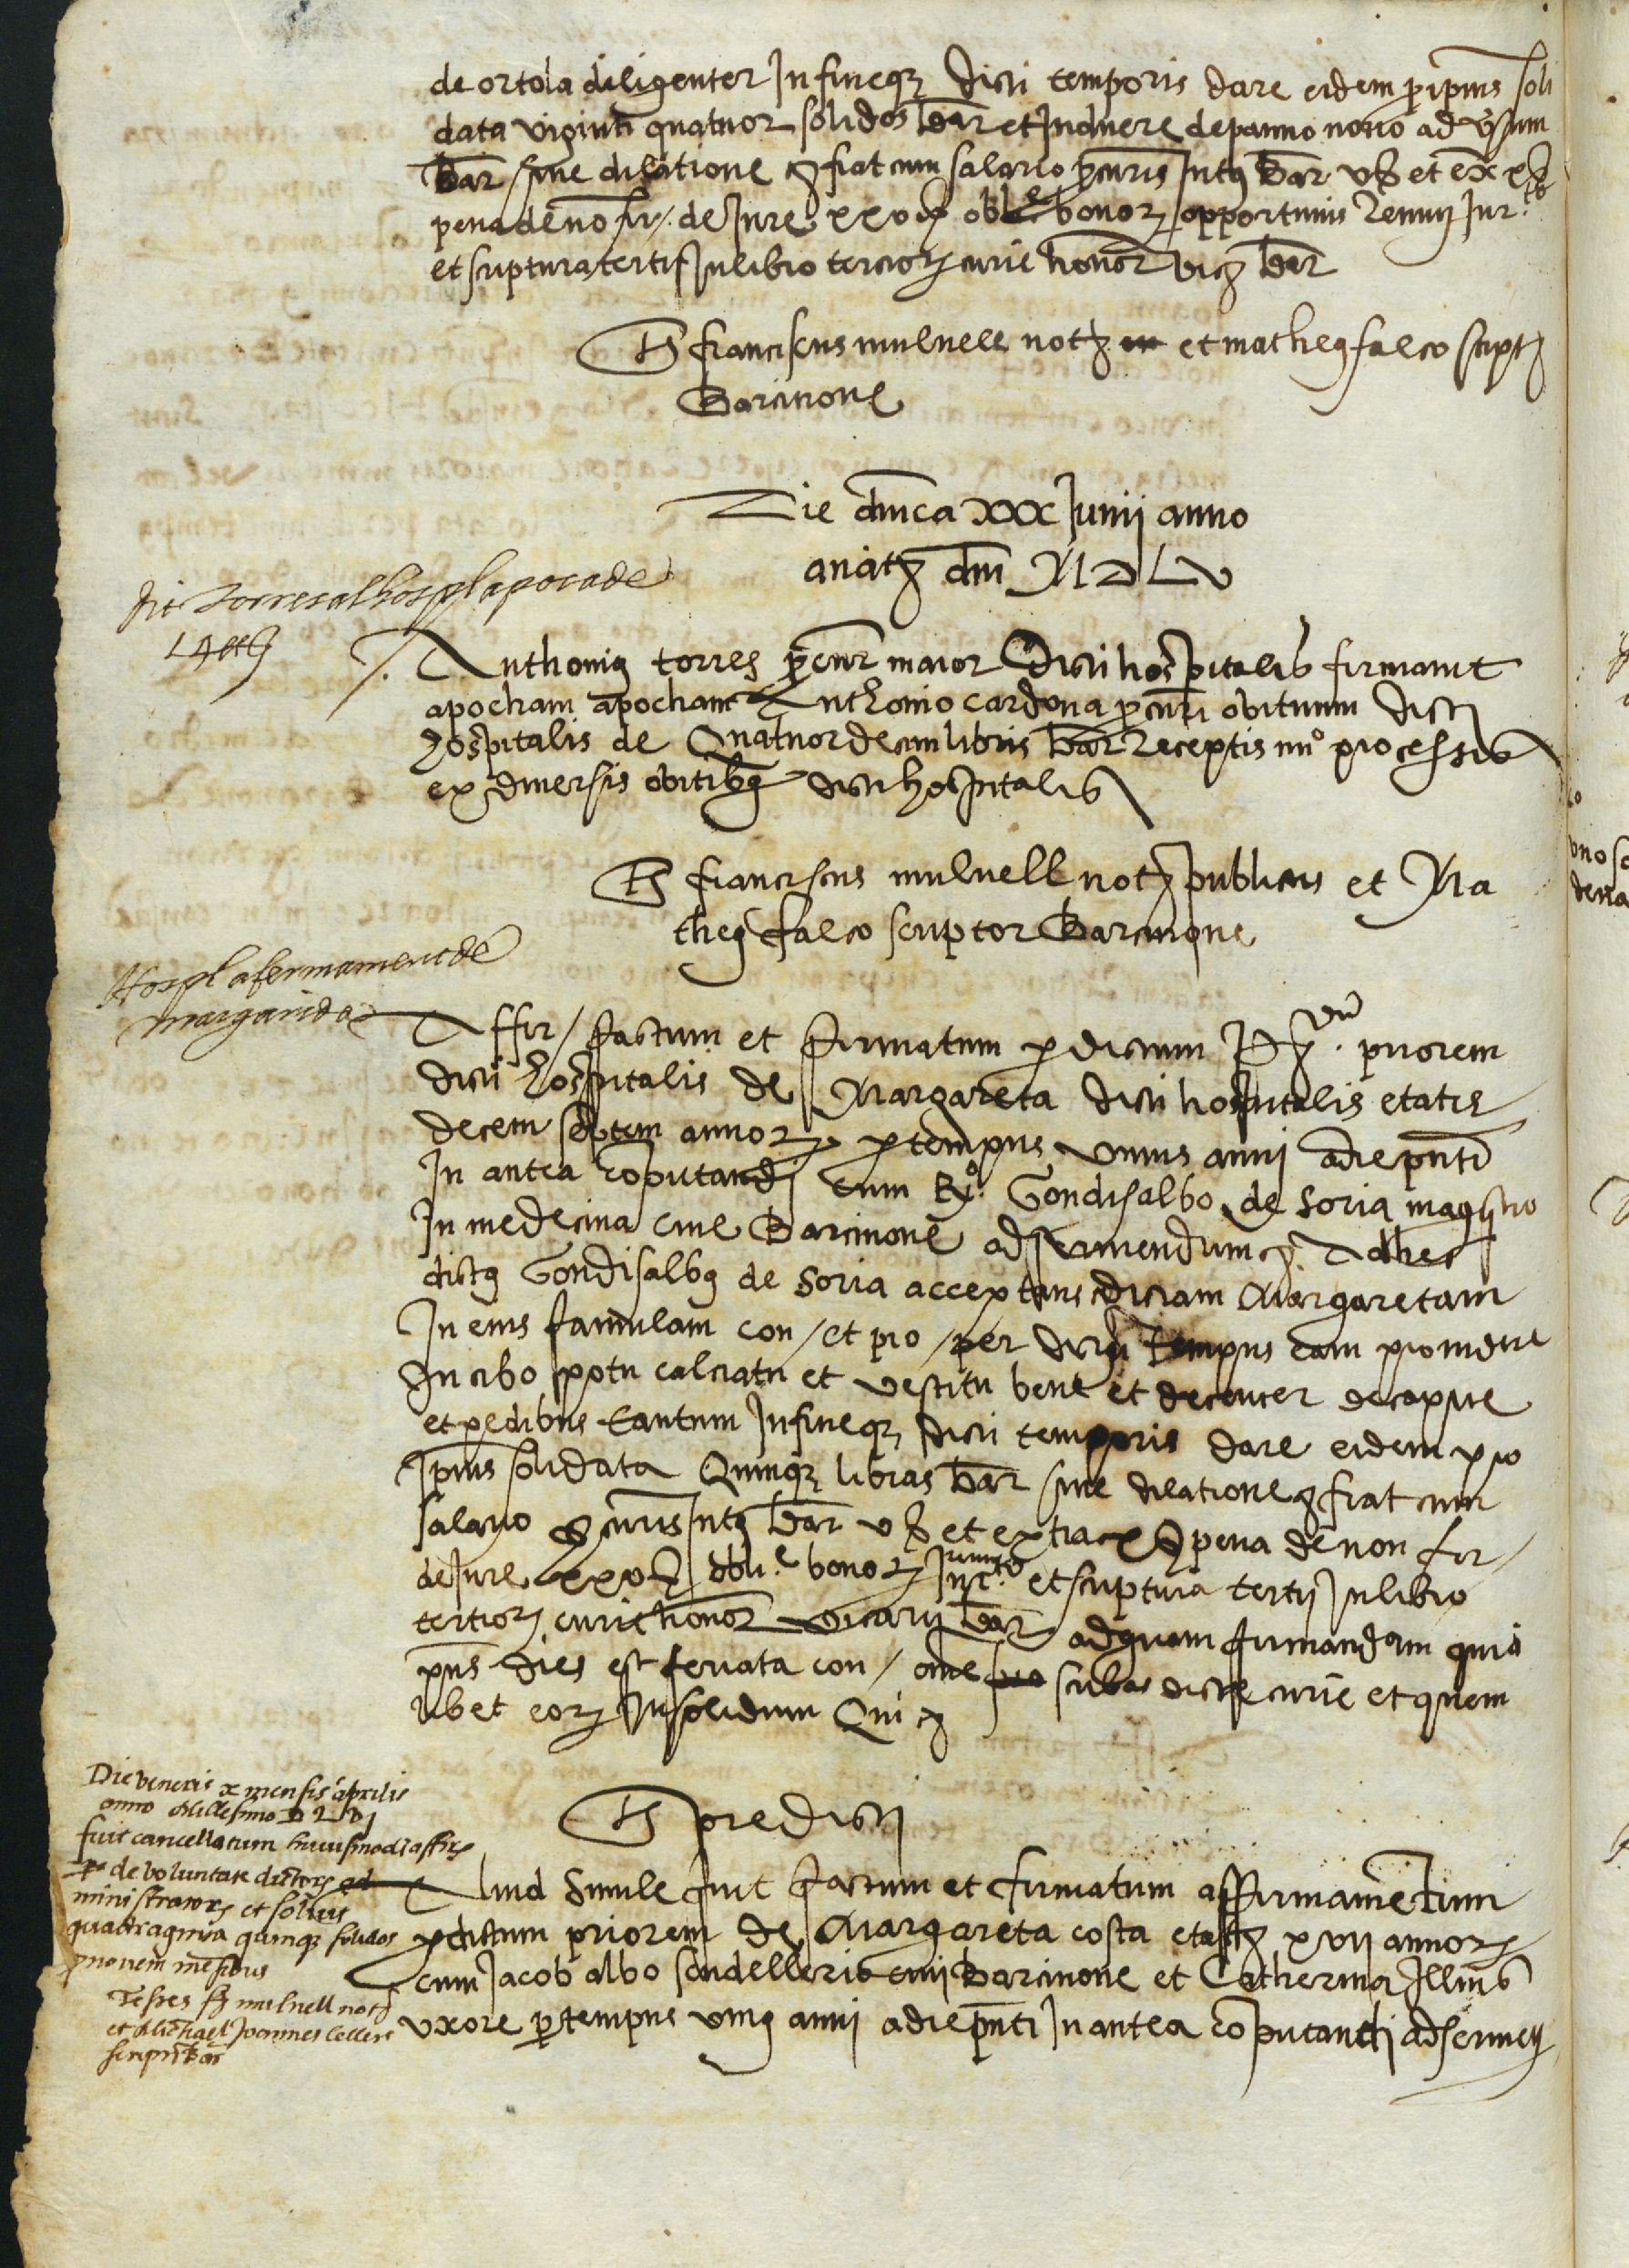 de ortola diligenter Infineqz dicti temporis dare eidem pro ipius soli
data viginti quatuor solidos bar et Induere depanno nouo ad vsum
bar sine dilatione & fiat cum salario procuris Intus bar vs et ex xs
pena de no fir / de Jure xxvs obl bonorz opportunis Renunz Jur.to
et scriptura tertii Inlibro tercior curie honor vicz bar
Ts franciscus mulnell notz et matheus falco scriptz
Barcinone
Die dmca xxx Junij anno
anatz dm M D L v
fit Torres al hospl apoca de
Anthonius torres procur maior dicti hospitalis firmauit
apocham apocham Anthonio cardona procuri obituum dicti
hospitalis de Quatuordecim libris bar Receptis nuo processis
ex diuersis obitibus dicti hospitalis
Ts franciscus mulnell notz publicus et Ma
theus falco scriptor Barcinone
Hospl afermament de
margarida
Affir / factum et firmatum per dictum Rz.dum priorem
dicti hospitalis de Margareta dicti hospitalis etatis
decem septem annorz pertempus vnius anni adie pnti
In antea coputandi cum Rdo. Gondisalbo de Soria magistro
In medecina ciue Barcinone ad seruiendum &. Adhec
dictus Gondisalbus de Soria acceptans dictam Margaretam
In eius famulam con / et pro / per dictu tempus eam prouidere
In cibo potu calciatu et vestitu bene et decenter decapite
et pedibus tantum Infineqz dicti temporis dare eidem pro
Ipius solidata Quinqz libras bar sine dilatione & fiat cum
salario procuris Intus bar v s et extra x s pena de non fir /
de Jure xxv s obli.e bonorz Jur.to et scriptura tertij Inlibro
tertiorz curie honor vicarij bar ad quam firmandam quia
pns dies est feriata con / ome scribas dicte curie et quem
libet eorz Insolidum Qui &
Ts predicti
Die veneris x mensis aprilis
anno Millesimo D L vj
fuit cancellatum huiusmodi affirz
de voluntate dictorz ad
ministratorz et soluit
quadraginta quinqz solidos
pro nouem mesibus
Testes fz mulnell notz
et Michael Joannes Celleres
scriptz bar
Aliud Simile fuit factum et firmatum affirmamentum
per dictum priorem de Margareta costa etatis xvij annorz
cum Jacob albo scudelleris ciui Barcinone et Catherina Illius
vxore pertempus vnius anni adie pnti In antea coputandi ad seruiez